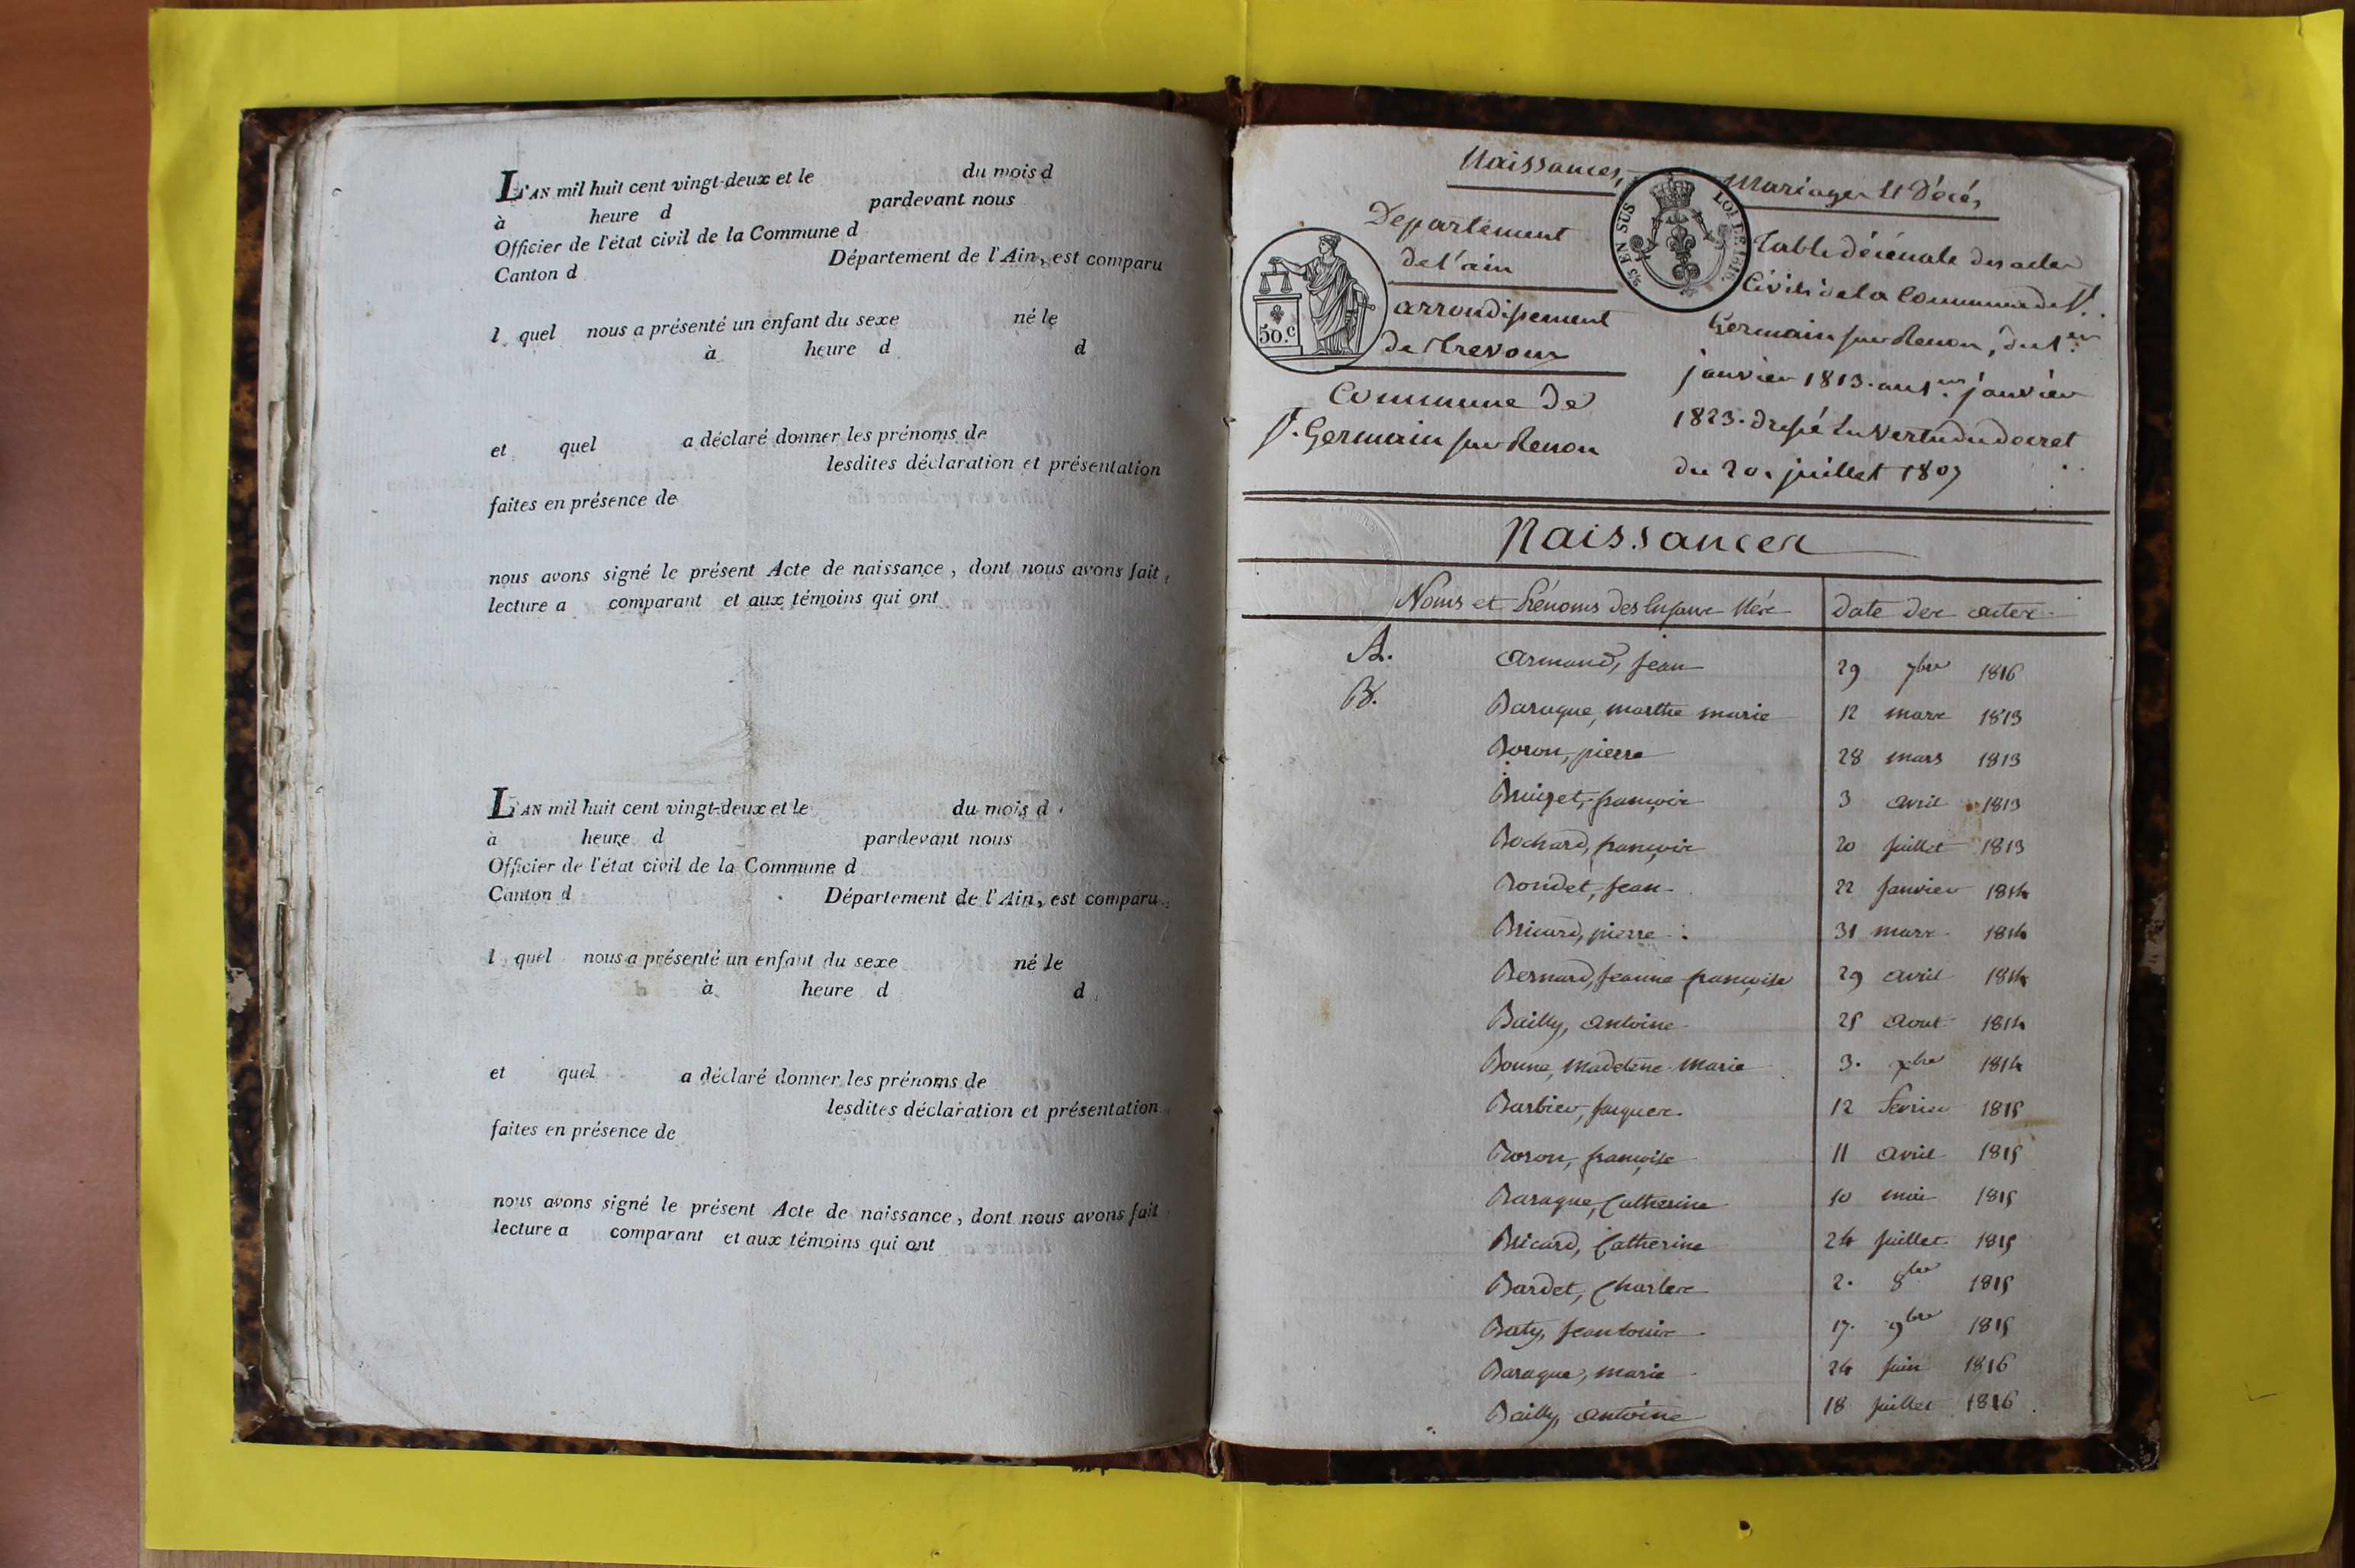 L'AN mil huit cent vingt-deux et le du mois d
à heure d pardevant nous
Officier de l'état civil de la Commune d
Canton d Département de l'Ain, est comparu
l quel nous a présenté un enfant du sexe né le
à heure d d
et quel a déclaré donner les prénoms de
lesdites déclaration et présentation
faites en présence de
nous avons signé le présent Acte de naissance, dont nous avons fait
lecture a comparant et aux témoins qui ont
L'AN mil huit cent vingt-deux et le du mois d
à heure d pardevant nous
Officier de l'état civil de la Commune d
Canton d Département de l'Ain, est comparu
l quel nous a présenté un enfant du sexe né le
à heure d d
et quel a déclaré donner les prénoms de
lesdites déclaration et présentation
faites en présence de
nous avons signé le présent Acte de naissance, dont nous avons fait
lecture a comparant et aux témoins qui ont
Naissances, Mariages et Décés
Departement
de l'ain
arrondissement
de Trevoux
Commune de
St. Germain sur Renon
50.c
EN SUS LOI DE 1816
Table décénale des actes
Civils de la Commune de St.
Germain sur Renon, du 1er
janvier 1813. au 1er janvier
1823. dressé en vertu du decret
du 20. juillet 1807
Naissances
Noms et Prénoms des Enfans Nés Date des actes
A. Armand, Jean 29 7bre 1816
B. Baraque, marthe marie 12 mars 1813
Boron, pierre 28 mars 1813
françois 3 avril 1813
Bochard, françois 20 Juillet 1813
Rondet, Jean 22 Janvier 1814
Bricard, pierre 31 mars 1814
Bernard, Jeanne françoise 29 avril 1814
Bailly, Antoine 25 Aout 1814
Bonne, Madelene Marie 3. xbre 1814
Barbier, Jaques 12 fevrier 1815
Boron, françoise 11 avril 1815
Baraque, Catherine 10 mai 1815
Bricard, Catherine 24 Juillet 1815
Bardet, Charles 2. 8bre 1815
Baty, Jean Louis 17. 9bre 1815
Baraque, marie 24 Juin 1816
Bailly, Antoine 18 Juillet 1816